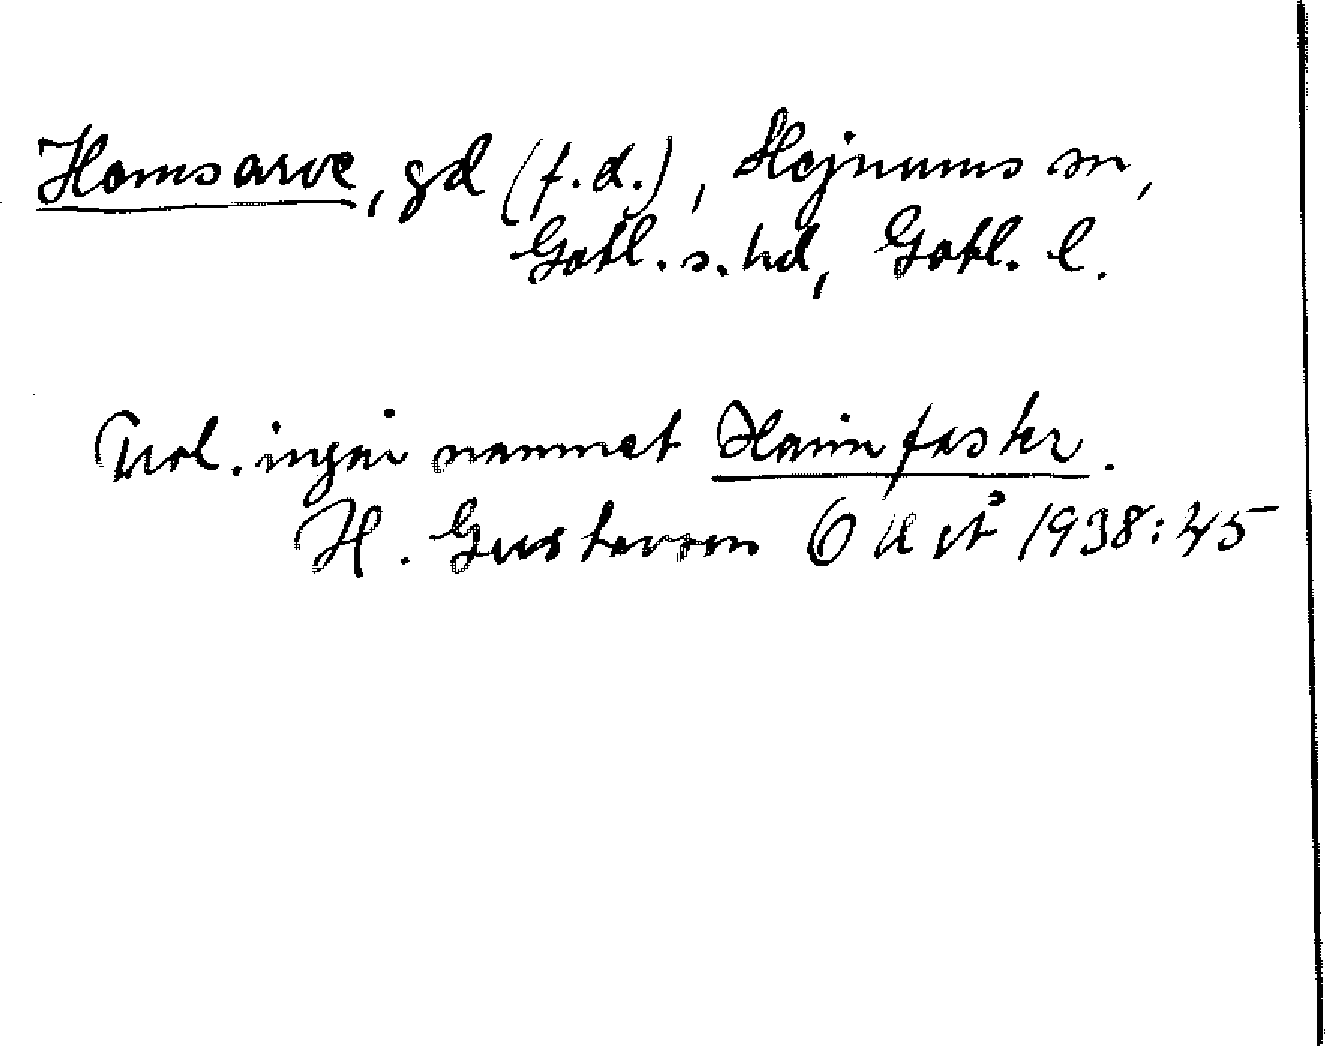 Homsarve, gd (f.d.), Hejnums sn,
Gotl. s. hd, Gotl. l.
Trol. ingår namnet Haimfaster.
H. Gustavson 1938:45